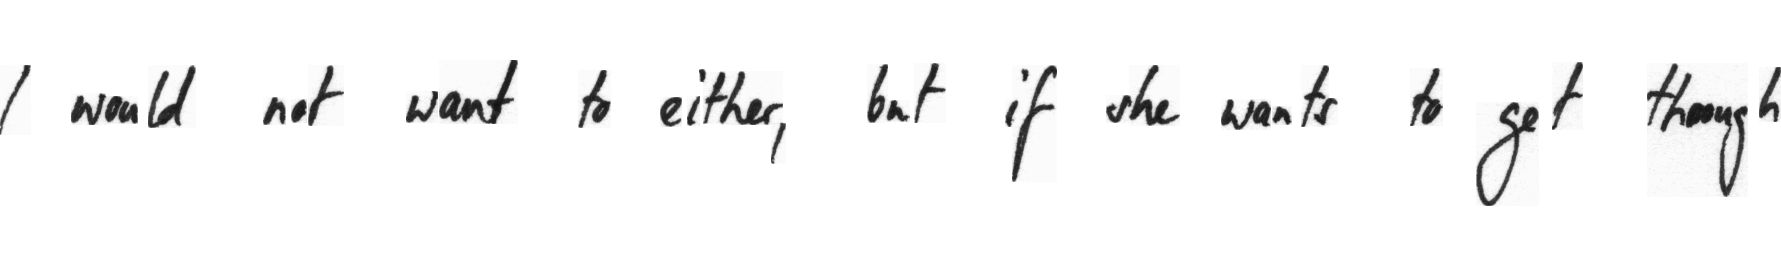 I would not want to either, but if she wants to get through